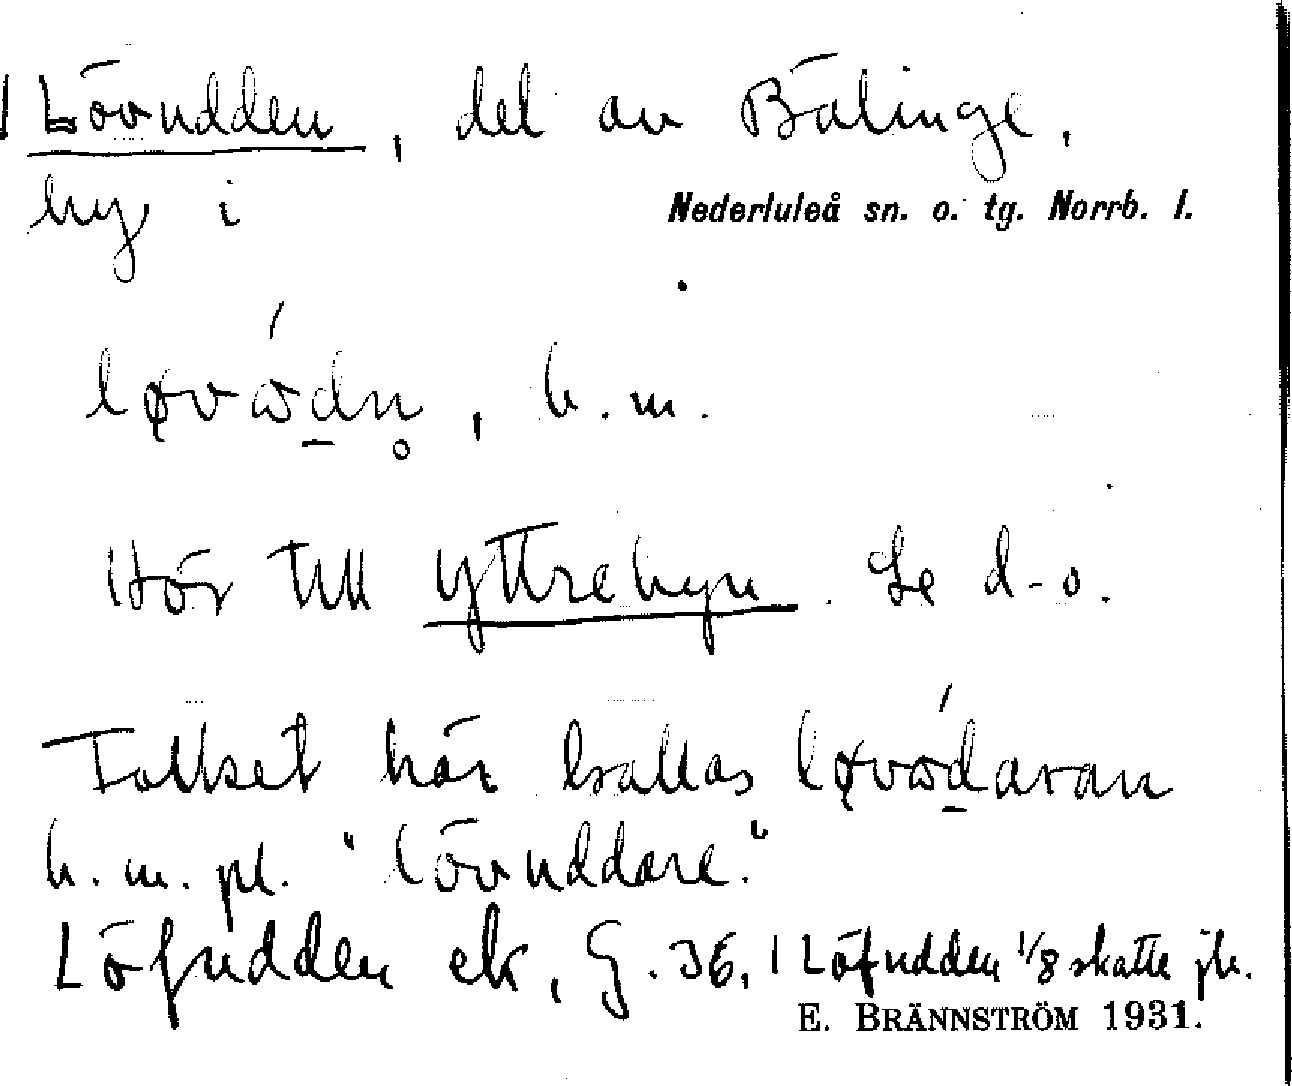 1 Lövudden, del av Bälinge,
by i Nederluleå sn. o. tg. Norrb. l.
løvώd̲n̥, b.m.
Hör till Yttrebyn. Se d-o.
Folket här kallas løvώd̲aran
b.m.pl. "lövuddare."
Löfudden ek, G. 36, 1 Löfudden 1/8 skatte jb.
E. BRÄNNSTRÖM 1931.